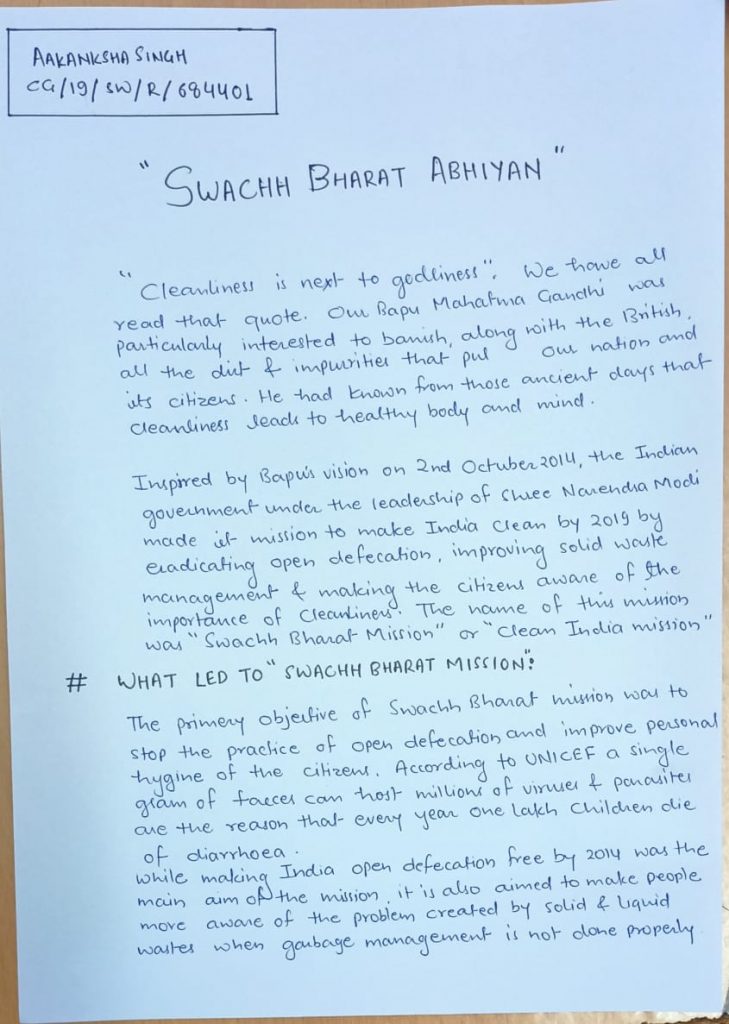 AAKANKSHA SINGH
CG/19/SW/R/684401
"SWACHH BHARAT ABHIYAN"
"Cleanliness is next to godliness". We have all
read that quote. Our Bapu Mahatma Gandhi was
particularly interested to banish, along with the British,
all the dirt & impurities that put our nation and
its citizens. He had known from those ancient days that
cleanliness leads to healthy body and mind.
Inspired by Bapu's vision on 2nd October 2014, the Indian
government under the leadership of Shree Narendra Modi
made it mission to make India clean by 2019 by
eradicating open defecation, improving solid waste
management & making the citizens aware of the
importance of cleanliness. The name of this mission
was "Swachh Bharat Mission" or "Clean India mission"
# WHAT LED TO "SWACHH BHARAT MISSION":
The primery objective of Swachh Bharat mission was to
stop the practice of open defecation and improve personal
hygine of the citizens. According to UNICEF a single
gram of faeces can host millions of viruses & parasites
are the reason that every year one lakh children die
of diarrhoea.
while making India open defecation free by 2014 was the
main aim of the mission, it is also aimed to make people
more aware of the problem created by solid & liquid
wastes when garbage management is not done properly.